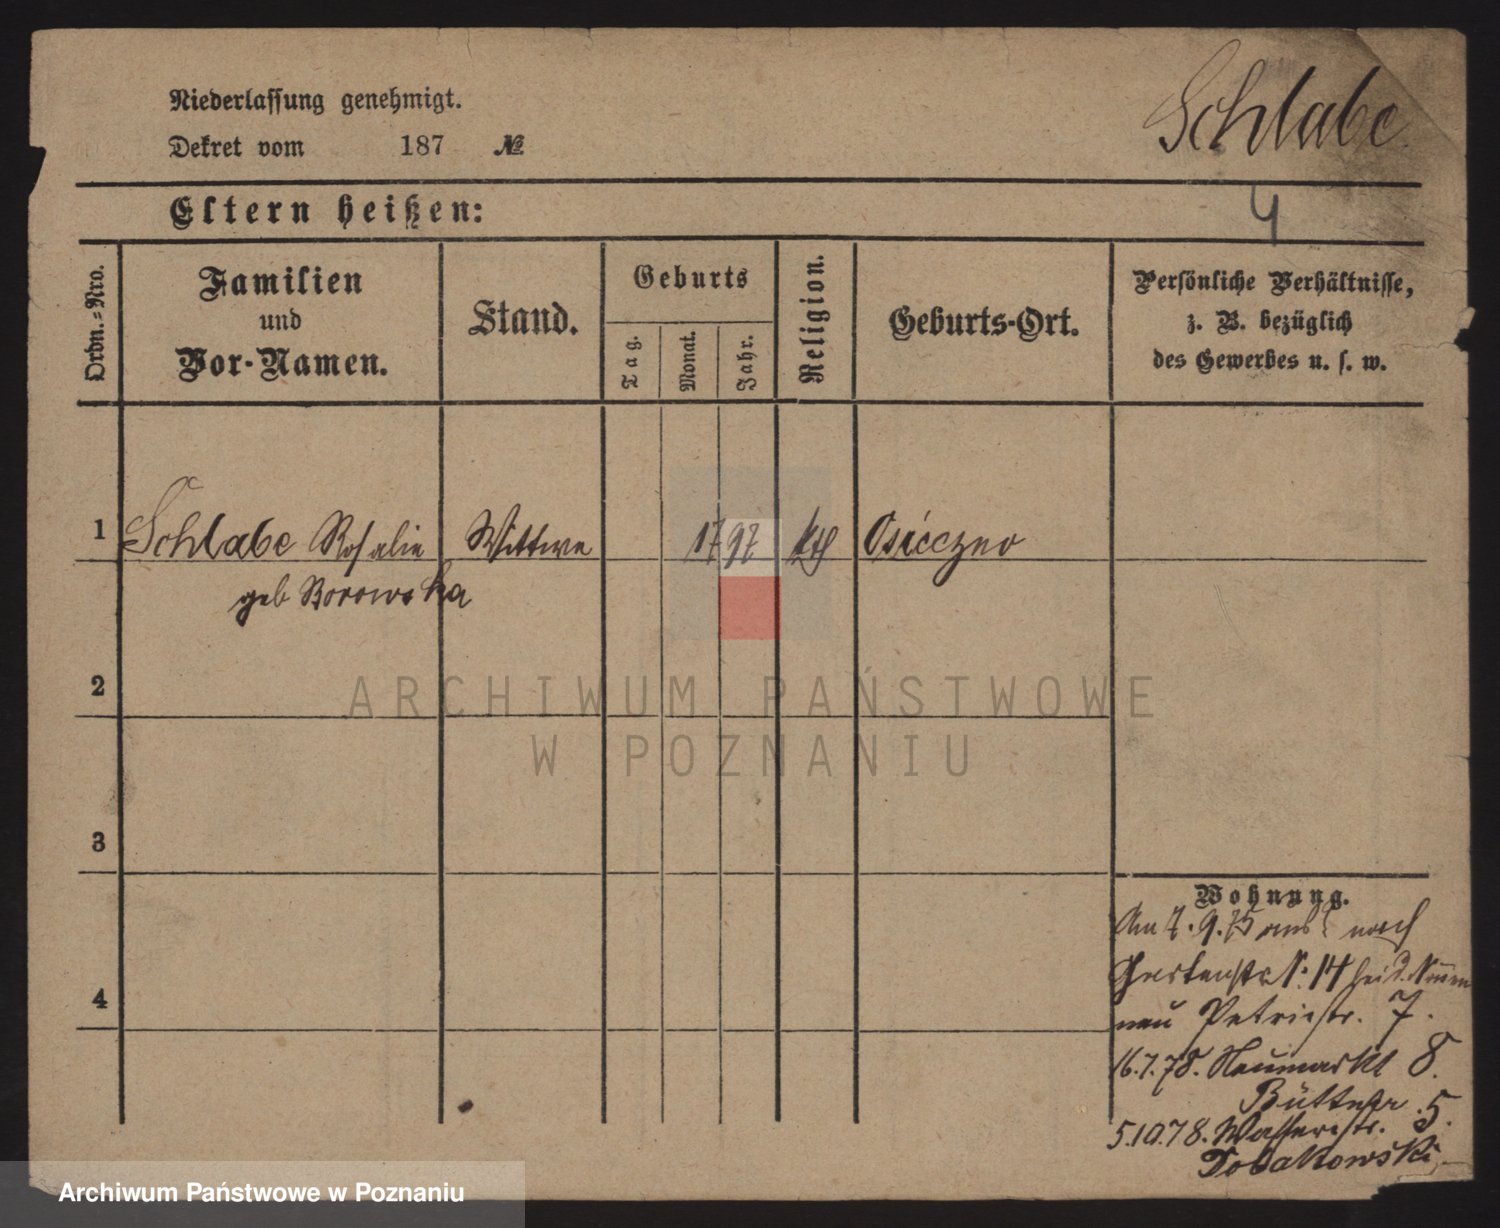 Niederlassung genehmigt.
Dekret vom 187 №
Schlabe
Eltern heißen:
4
Ordn.-Nro.
Familien
und
Vor-Namen.
Stand.
Geburts
Tag.
Monat.
Jahr.
Religion.
Geburts-Ort.
Persönliche Verhältnisse,
z. B. bezüglich
des Gewerbes u. s. w.
1 Schlabe Rosalie Wittwe 1797 kth Osieczno
geb Borowska
2
ARCHIWUM PAŃSTWOWE
W POZNANIU
3
4
Wohnung.
Am 7.9.75 nach
Gartenstr N: 14 bei
neu Petristr. 7.
16.7.78. Neumarkt 8.
Büttner
5.10.78. Wasserstr. 5.
Tobakowski
Archiwum Państwowe w Poznaniu